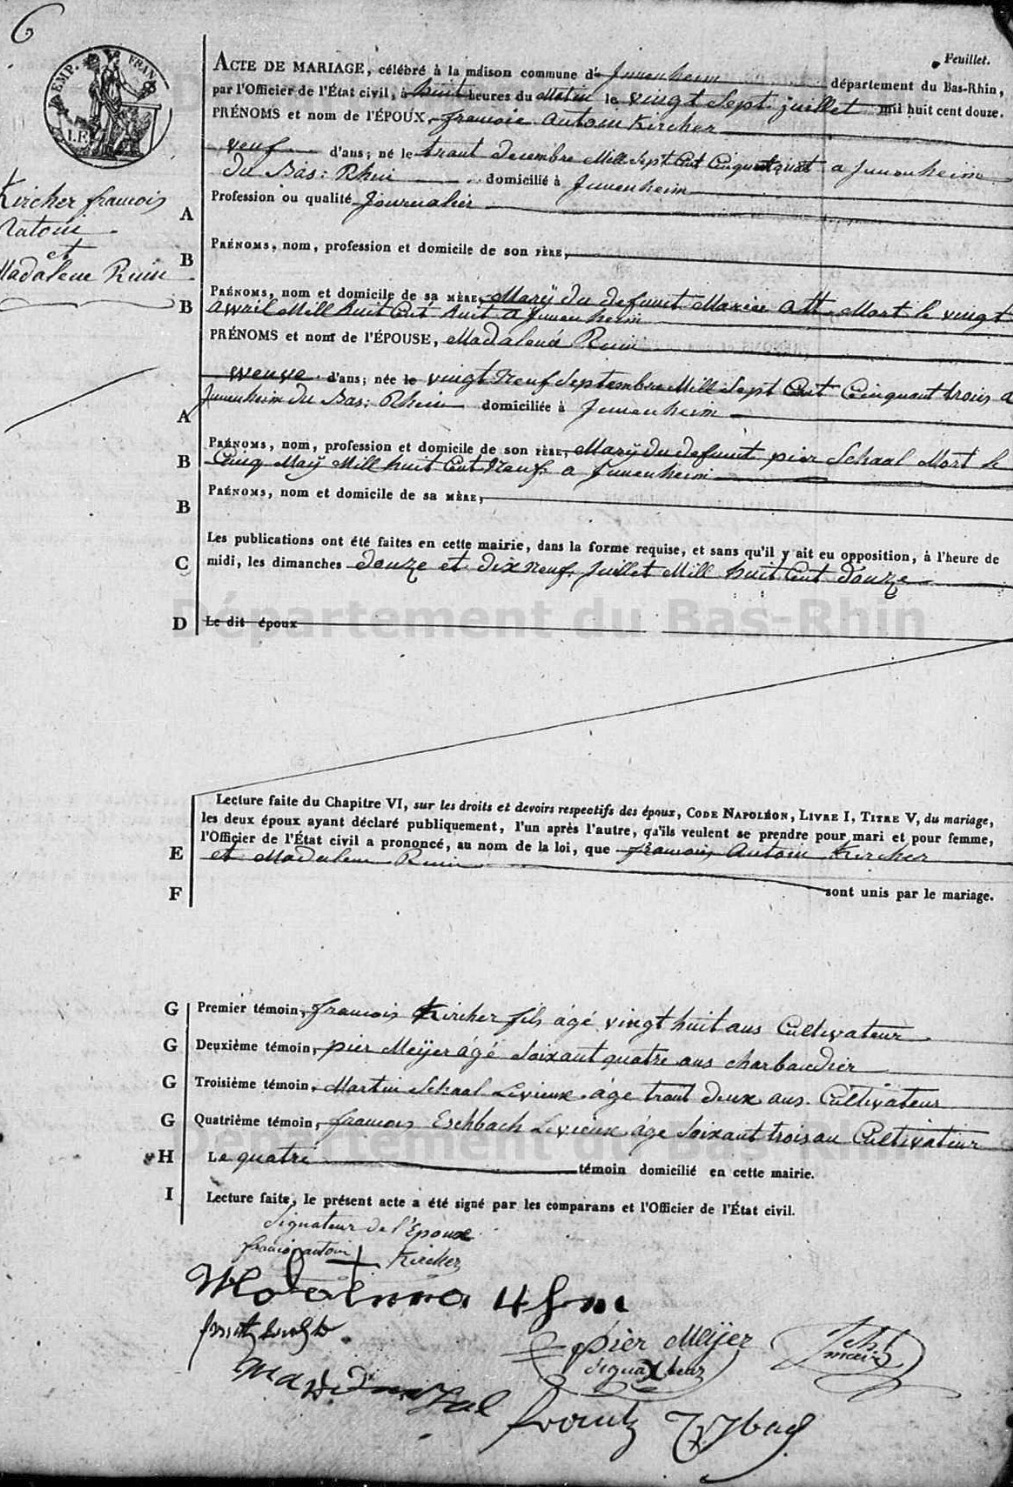 6
EMP. FRAN
Feuillet.
ACTE DE MARIAGE, célébré à la maison commune d' Juuenheim département du Bas-Rhin,
par l'Officier de l'État civil, à huit heures du Matin le vingt Sept juillet mil huit cent douze.
PRÉNOMS et nom de l'ÉPOUX, francoie Antoin Kircher
veuf d'ans; né le trant decembre Mill Sept Cent Cinquant quat a Juuenheim
du Bas: Rhein domicilié à Juuenheim
Kircher francois
Antoin
et
Madalene Ruin
A Profession ou qualité Journalier
B PRÉNOMS, nom, profession et domicile de son PÈRE,
PRÉNOMS, nom et domicile de sa MÈRE, Marÿ du defunt Mariee Ott Mort le vingt
B avvril Mill huit Cent huit a Juuenheim
PRÉNOMS et nom de l'ÉPOUSE, Madalena Ruin
weuve d'ans; née le vingt Neuf Septembre Mill Sept Cent Cinquant trois a
A Juuenheim du Bas: Rhein domiciliée à Juuenheim
PRÉNOMS, nom, profession et domicile de son PÈRE, Marÿ du defunt pier Schaal Mort le
B Cinq Maÿ Mill huit Cent Neuf a Juuenheim
B PRÉNOMS, nom et domicile de sa MÈRE,
Les publications ont été faites en cette mairie, dans la forme requise, et sans qu'il y ait eu opposition, à l'heure de
C midi, les dimanches douze et dix neuf juillet Mill huit Cent douze
Département du Bas-Rhin
D Le dit époux
Lecture faite du Chapitre VI, sur les droits et devoirs respectifs des époux, CODE NAPOLÉON, LIVRE I, TITRE V, du mariage,
les deux époux ayant déclaré publiquement, l'un après l'autre, qu'ils veulent se prendre pour mari et pour femme,
l'Officier de l'État civil a prononcé, au nom de la loi, que francois Antoin Kircher
E et Madalene Ruin
F sont unis par le mariage.
G Premier témoin, francois Kircher fils âgé vingt huit ans Cultivateur
G Deuxième témoin, pier Meÿer âgé Soixant quatre ans charbaudier
G Troisième témoin, Martin Schaal Levieux âge trant deux ans Cultivateur
G Quatrième témoin, francois Eschbach Levieux âge Soixant trois an Cultivateur
Département du Bas-Rhin
H Le quatre témoin domicilié en cette mairie.
I Lecture faite, le présent acte a été signé par les comparans et l'Officier de l'État civil.
Signateur de l'Epoux
francois antoin Kircher
pier Meÿer
maire